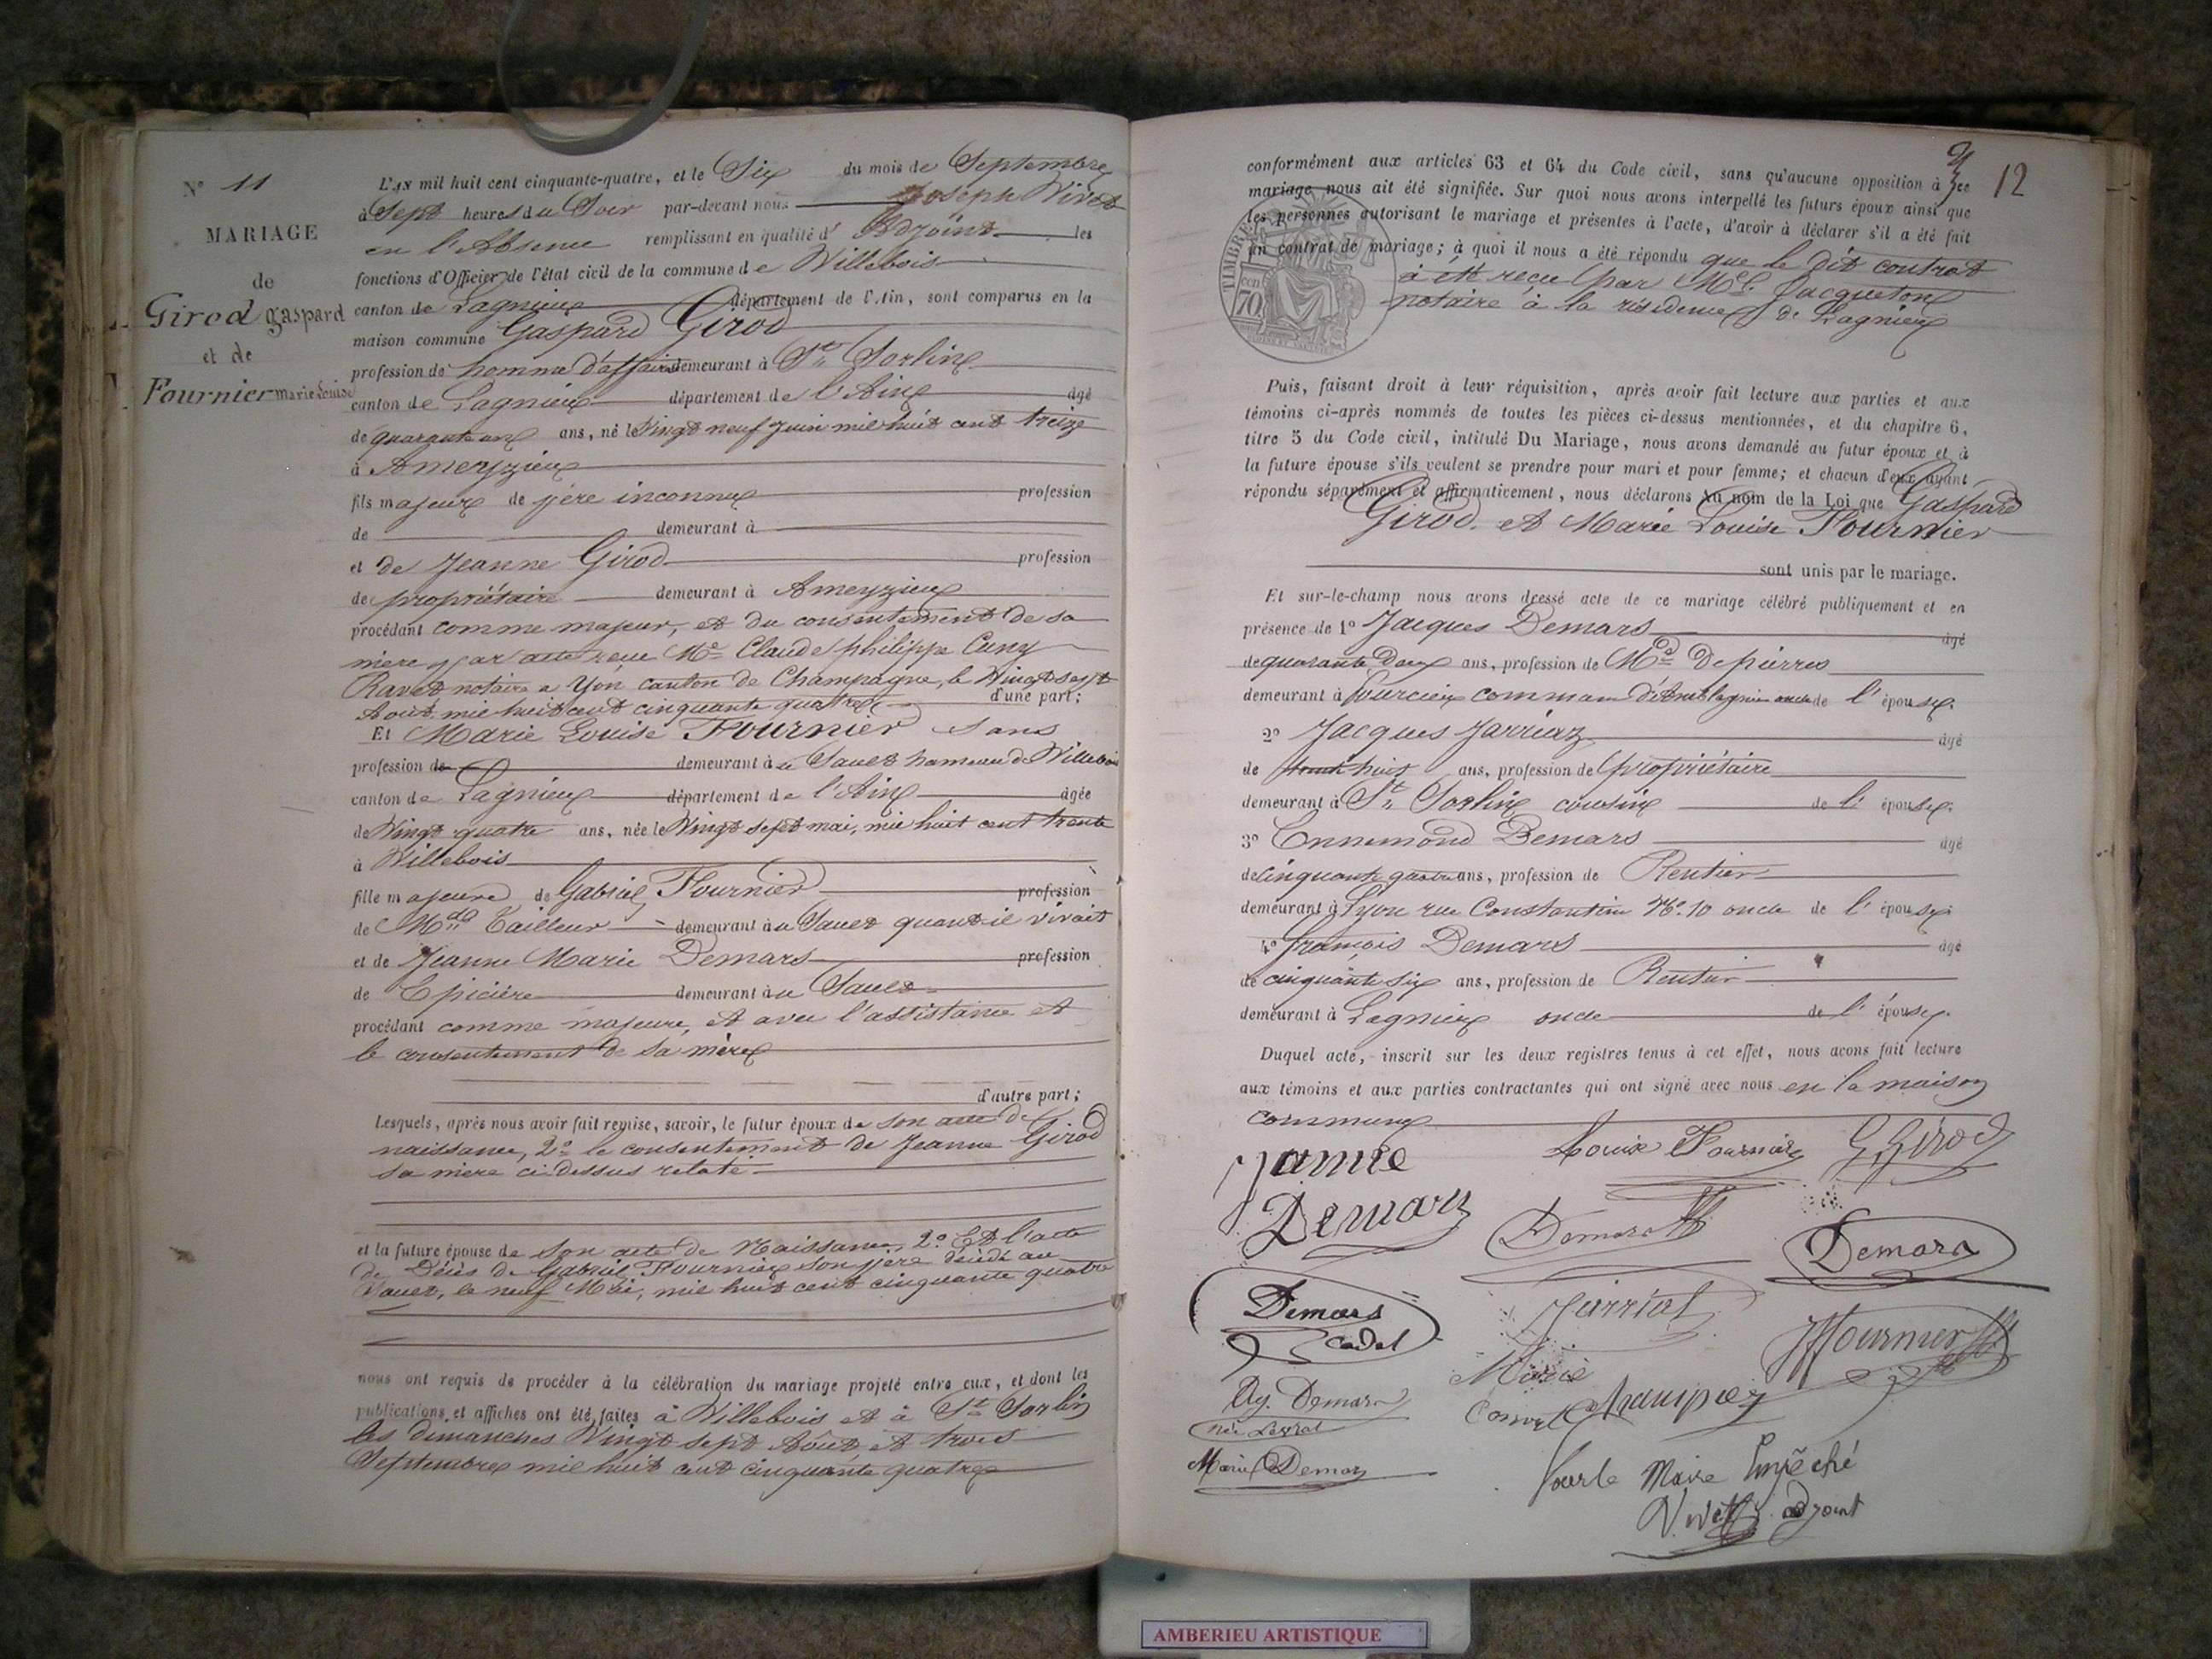 N° 11
MARIAGE
de
Girod gaspard
et de
Fournier marie Louise
L'AN mil huit cent cinquante-quatre, et le Six du mois de Septembre
à Sept heures du Soir par-devant nous Joseph Vivet
en l'Absence remplissant en qualité d' Adjoint les
fonctions d'Officier de l'état civil de la commune de Villebois
canton de Lagnieux département de l'Ain, sont comparus en la
maison commune Gaspard Girod
profession de homme d'affaires demeurant à St Sorlin
canton de Lagnieux département de l'Ain agé
de quarante un ans, né le Vingt neuf Juin mil huit cent treize
à Ameyzieux
fils majeur de père inconnu profession
de demeurant à
et de Jeanne Girod profession
de propriétaire demeurant à Ameyzieux
procédant comme majeur, et du consentement de sa
mère par acte reçu Me Claude philippe Cuny
Ravet notaire a Yon canton de Champagne, le Vingt sept
Août mil huit cent cinquante quatre d'une part;
Et Marie Louise Fournier Sans
profession de demeurant au Sault hameau de Villebois
canton de Lagnieux département de l'Ain âgée
de Vingt quatre ans, née le Vingt sept mai, mil huit cent trente
à Villebois
fille majeure de Gabriel Fournier profession
de Md Tailleur demeurant au Sault quand il vivait
et de Jeanne Marie Demars profession
de Epicière demeurant au Sault
procédant comme majeure, et avec l'assistance et
le consentement de sa mère
d'autre part;
Lesquels, après nous avoir fait remise, savoir, le futur époux de son acte de
naissance, 2° le consentement de Jeanne Girod
sa mère ci dessus relaté
et la future épouse de son acte de Naissance, 2° Et l'acte
de Décès de Gabriel Fournier son père décédé au
Sault, le neuf Mai, mil huit cent cinquante quatre
nous ont requis de procéder à la célébration du mariage projeté entre eux, et dont les
publications et affiches ont été faites à Villebois et à St Sorlin
les dimanches Vingt sept Août et trois
Septembre mil huit cent cinquante quatre
12
conformément aux articles 63 et 64 du Code civil, sans qu'aucune opposition à ce
mariage nous ait été signifiée. Sur quoi nous avons interpellé les futurs époux ainsi que
les personnes autorisant le mariage et présentes à l'acte, d'avoir à déclarer s'il a été fait
un contrat de mariage; à quoi il nous a été répondu que le dit contrat
à été reçu par Me Jacqueton
notaire à la résidence de Lagnieux
TIMBRE
70
Puis, faisant droit à leur réquisition, après avoir fait lecture aux parties et aux
témoins ci-après nommés de toutes les pièces ci-dessus mentionnées, et du chapitre 6,
titre 5 du Code civil, intitulé Du Mariage, nous avons demandé au futur époux et à
la future épouse s'ils veulent se prendre pour mari et pour femme; et chacun d'eux ayant
répondu séparément et affirmativement, nous déclarons au nom de la Loi que Gaspard
Girod et Marie Louise Fournier
sont unis par le mariage.
Et sur-le-champ nous avons dressé acte de ce mariage célébré publiquement et en
présence de 1° Jacques Demars âgé
de quarante Deux ans, profession de Md De pierres
demeurant à commune oncle de l' épouse
2° Jacques Jarriaz âgé
de huit ans, profession de propriétaire
demeurant à St Sorlin cousin de l' épouse
3° Ennemond Demars âgé
de cinquante quatre ans, profession de Rentier
demeurant à Lyon rue Constantine N° 10 oncle de l' épouse
4° françois Demars âgé
de cinquante six ans, profession de Rentier
demeurant à Lagnieux oncle de l' épouse
Duquel acte, inscrit sur les deux registres tenus à cet effet, nous avons fait lecture
aux témoins et aux parties contractantes qui ont signé avec nous en la maison
commune
Louise Fournier G Girod
Demars Demars Demars
Demars cadet Jarriat Fournier
Demars Marie
Marie Demars
Pour le Maire Empêché
Vivet adjoint
AMBERIEU ARTISTIQUE